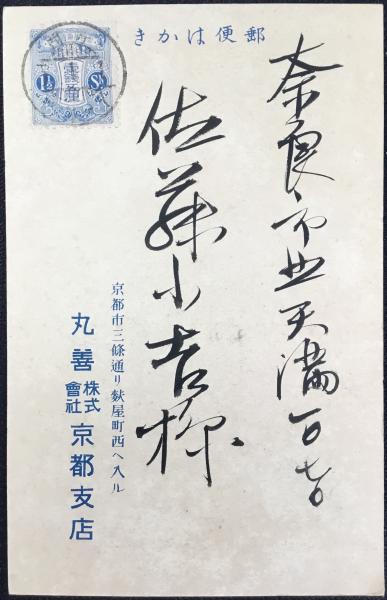 郵便はかき
奈良市北天満一〇七
佐藤小吉様
京都市三條通り麩屋町西へ入ル
丸善株式會社京都支店
1½ Sn